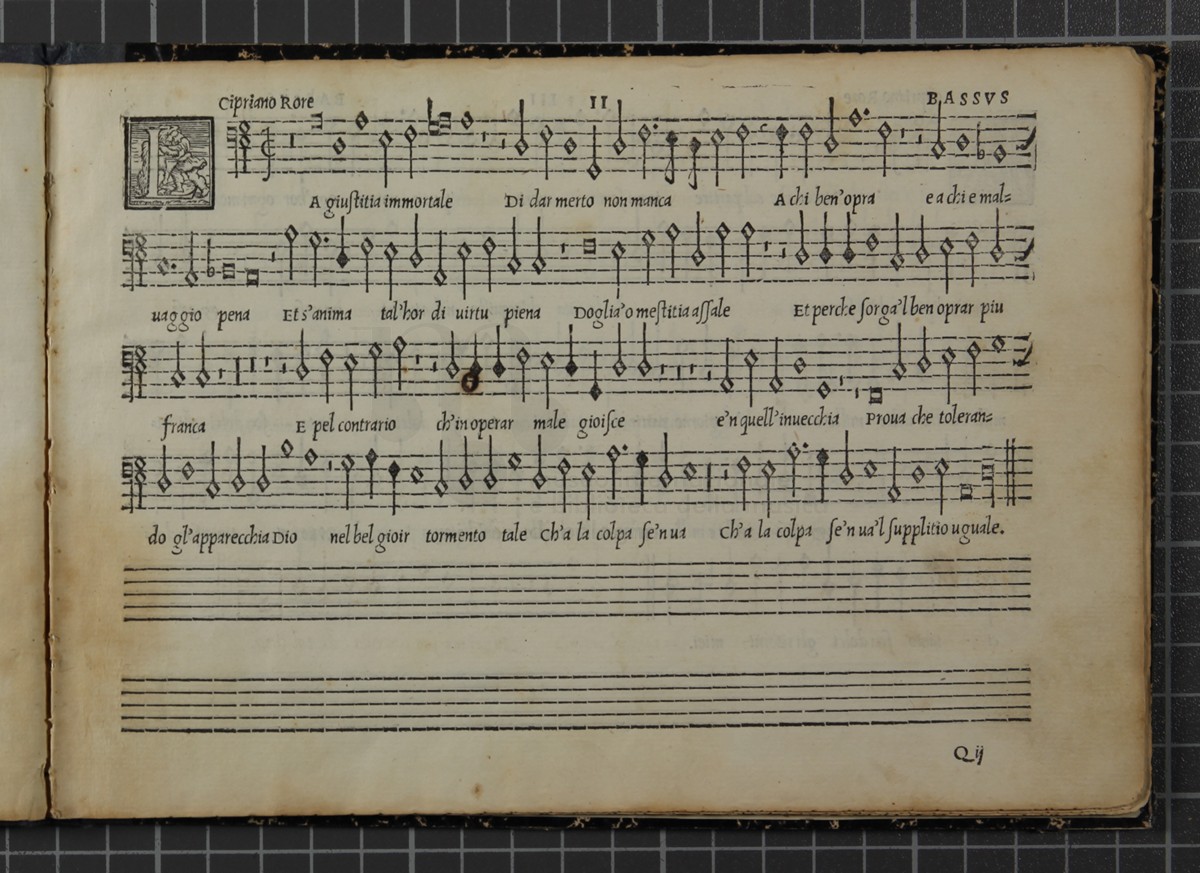 Cipriano Rore II BASSVS
LA giuſtitia immortale Di dar merto non manca A chi ben'opra e a chi e mal=
uaggio pena Et s'anima tal'hor di uirtu piena Doglia'o meſtitia aſſale Et perche ſorga'l ben oprar piu
franca E pel contrario ch'in operar male gioiſce e'n quell'inuecchia Proua che toleran=
do gl'apparecchia Dio nel bel gioir tormento tale Ch'a la colpa ſe'n ua Ch'a la colpa ſe'n ua'l ſupplitio uguale.
Q ij